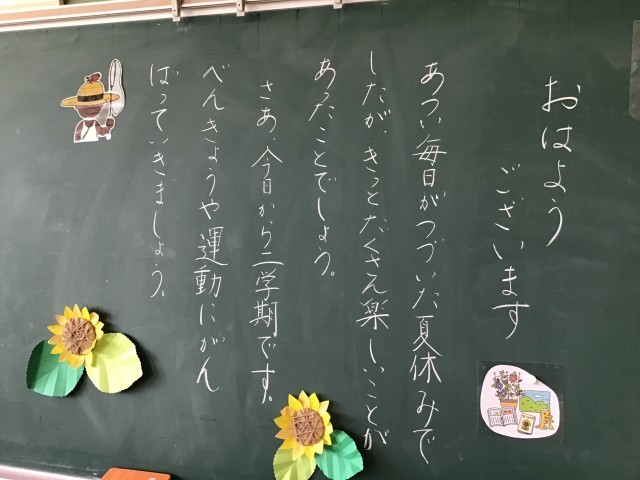 おはよう
ございます
あつい毎日がつづいた夏休みで
したが、きっとたくさん楽しいことが
あったことでしょう。
さあ、今日から二学期です。
べんきょうや運動にがん
ばっていきましょう。